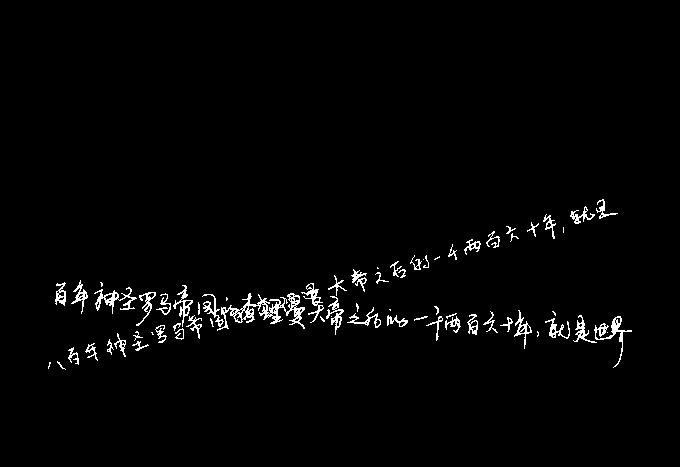 百年神圣罗马帝国的查理曼大帝之后的一千两百六十年,就是世界
八百年神圣罗马帝国的查理曼大帝之后的一千两百六十年,就是